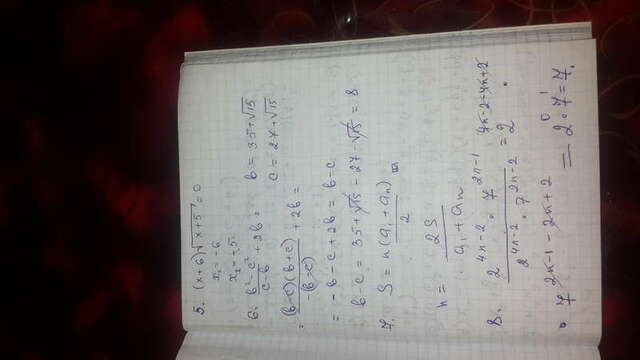 5. (x+6)√(x+5) = 0
x₁ = -6
x₂ = -5.
6. (b²-c²)/(c-b) + 2b =
b = 35+√15
c = 27+√15
= (b-c)(b+c)/-(b-c) + 2b =
= -b-c+2b = b-c
b-c = 35+√15-27-√15 = 8
7. S = n(a₁+aₙ)/2
n = 2S/(a₁+aₙ)
8. (2^(4n-2) · 7^(2n-1))/(2^(4n-2) · 7^(2n-2)) = 2^(4n-2-4n+2) ·
· 7^(2n-1-2n+2) = 2⁰ · 7¹ = 7.